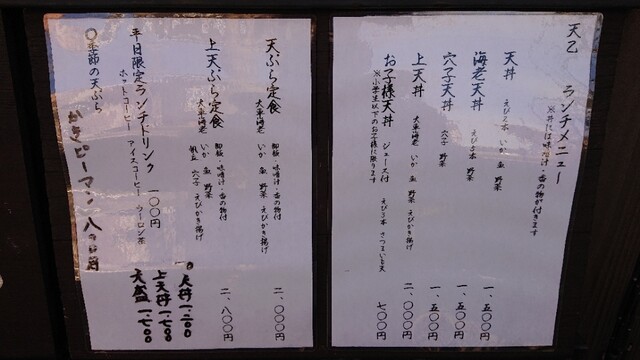 天乙 ランチメニュー
※丼には味噌汁・香の物が付きます
天丼 えび2本 いか 魚 野菜 一、五〇〇円
海老天丼 えび5本 野菜 一、五〇〇円
穴子天丼 穴子 野菜 一、五〇〇円
上天丼 大車海老 いか 魚 野菜 えびかき揚げ 二、〇〇〇円
お子様天丼 ジュース付 えび3本 さつまいも天 七〇〇円
※小学生以下のお子様に限ります
天ぷら定食 御飯・味噌汁・香の物付 二、〇〇〇円
大車海老 いか 魚 野菜 えびかき揚げ
上天ぷら定食 御飯・味噌汁・香の物付 二、八〇〇円
大車海老 いか 魚 野菜
帆立 穴子 えびかき揚げ
平日限定ランチドリンク 一〇〇円
ホットコーヒー アイスコーヒー ウーロン茶
〇季節の天ぷら
かきピーマン 八〇〇円
天丼 1.200
上天丼 1.700
天盛 1.700